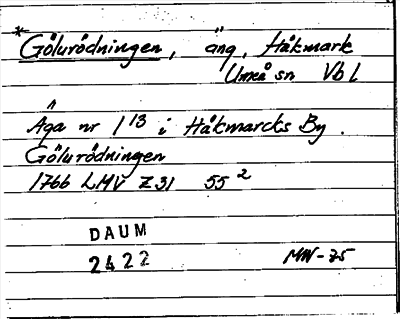 *Gölurödningen, äng, Håkmark
Umeå sn Vbl
Äga nr 1 13 i Håkmarcks By.
Gölurödningen
1766 LMV Z31 55 2
DAUM
2422 MW-75